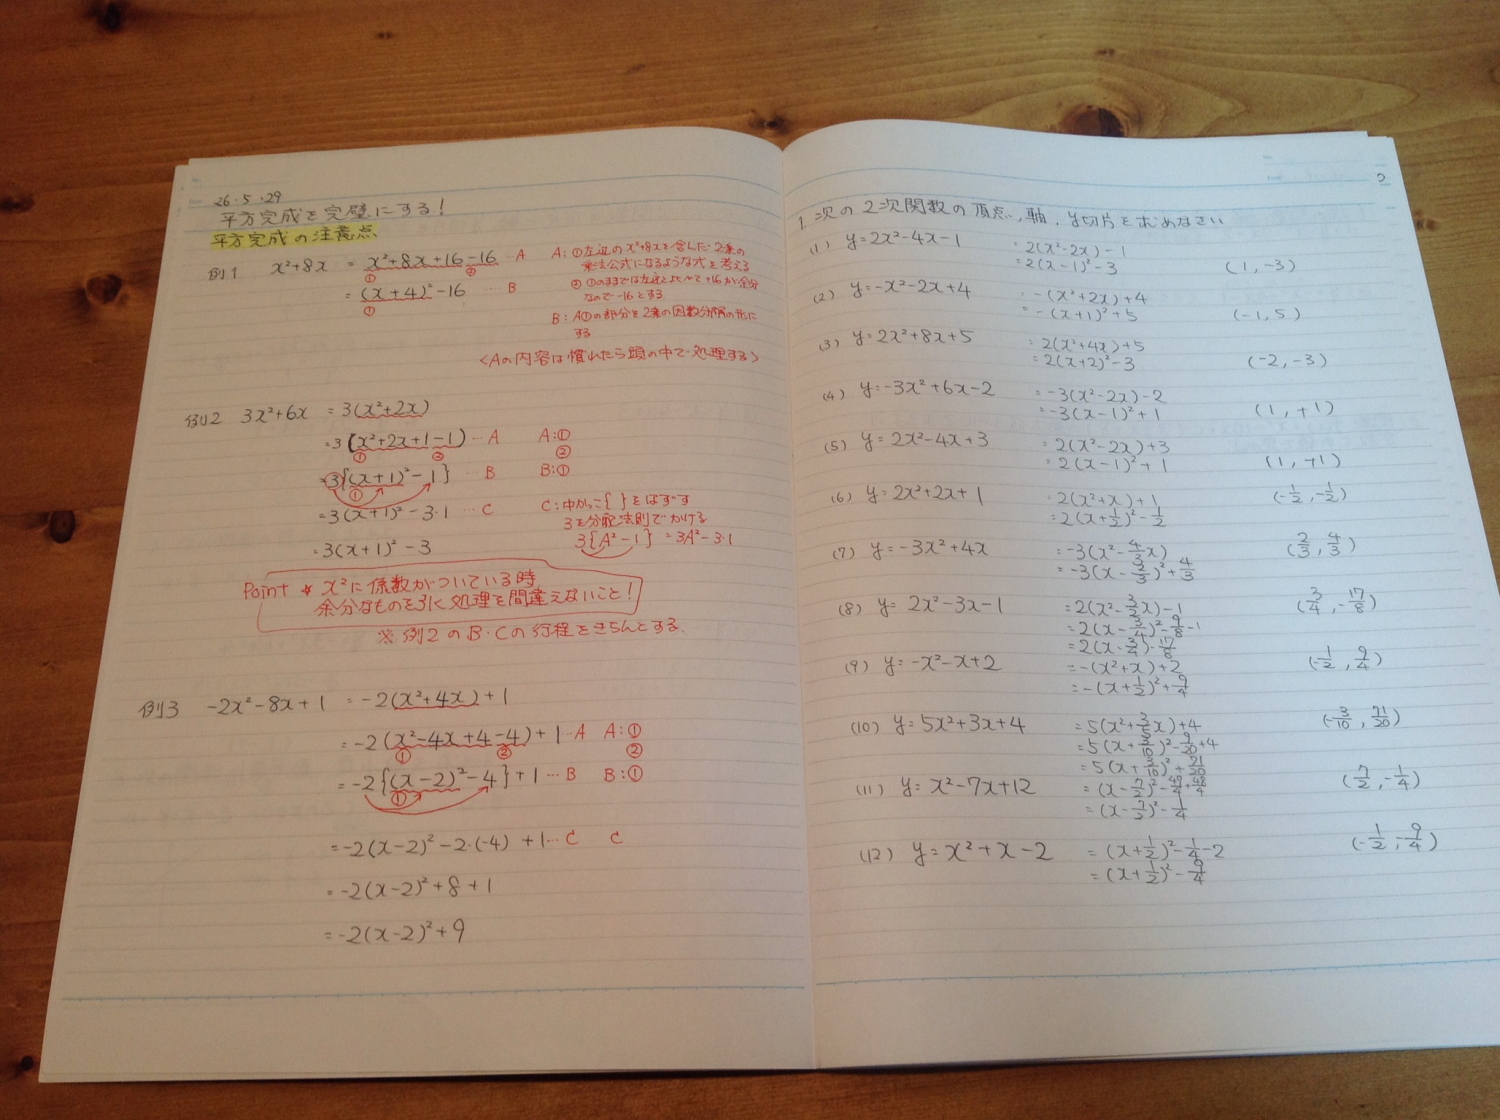 26.5.29
平方完成を完璧にする!
平方完成の注意点
例1 x²+8x = x²+8x+16-16 …A
① ②
= (x+4)²-16 …B
①
A:①左辺のx²+8xを含んだ2乗の
乗法公式になるような式を考える
②①のままでは左辺と比べて+16が余分
なので-16とする
B:A①の部分を2乗の因数分解の形に
する
<Aの内容は慣れたら頭の中で処理する>
例2 3x²+6x = 3(x²+2x)
=3(x²+2x+1-1) …A A:①
① ② ②
=3{(x+1)²-1} …B B:①
①
=3(x+1)²-3·1 …C C:中かっこ{ }をはずす
3を分配法則でかける
3{A²-1}=3A²-3·1
=3(x+1)²-3
Point ★ x²に係数がついている時
余分なものを引く処理を間違えないこと!
※例2のB・Cの行程をきちんとする.
例3 -2x²-8x+1 = -2(x²+4x)+1
= -2(x²-4x+4-4)+1…A A:①
① ② ②
= -2{(x-2)²-4}+1…B B:①
①
= -2(x-2)²-2·(-4)+1…C C
= -2(x-2)²+8+1
= -2(x-2)²+9
2
1. 次の2次関数の頂点,軸,y切片を求めなさい
(1) y=2x²-4x-1 =2(x²-2x)-1
=2(x-1)²-3 (1,-3)
(2) y=-x²-2x+4 =-(x²+2x)+4
=-(x+1)²+5 (-1,5)
(3) y=2x²+8x+5 =2(x²+4x)+5
=2(x+2)²-3 (-2,-3)
(4) y=-3x²+6x-2 =-3(x²-2x)-2
=-3(x-1)²+1 (1,+1)
(5) y=2x²-4x+3 =2(x²-2x)+3
=2(x-1)²+1 (1,+1)
(6) y=2x²+2x+1 =2(x²+x)+1 (-1/2,-1/2)
=2(x+1/2)²-1/2
(7) y=-3x²+4x =-3(x²-4/3x) (2/3,4/3)
=-3(x-2/3)²+4/3
(8) y=2x²-3x-1 =2(x²-3/2x)-1 (3/4,-17/8)
=2(x-3/4)²-9/8-1
=2(x-3/4)²-17/8
(9) y=-x²-x+2 =-(x²+x)+2 (-1/2,9/4)
=-(x+1/2)²+9/4
(10) y=5x²+3x+4 =5(x²+3/5x)+4 (-3/10,71/20)
=5(x+3/10)²-9/20+4
=5(x+3/10)²+71/20
(11) y=x²-7x+12 =(x-7/2)²-49/4+48/4 (7/2,-1/4)
=(x-7/2)²-1/4
(12) y=x²+x-2 =(x+1/2)²-1/4-2 (-1/2,-9/4)
=(x+1/2)²-9/4